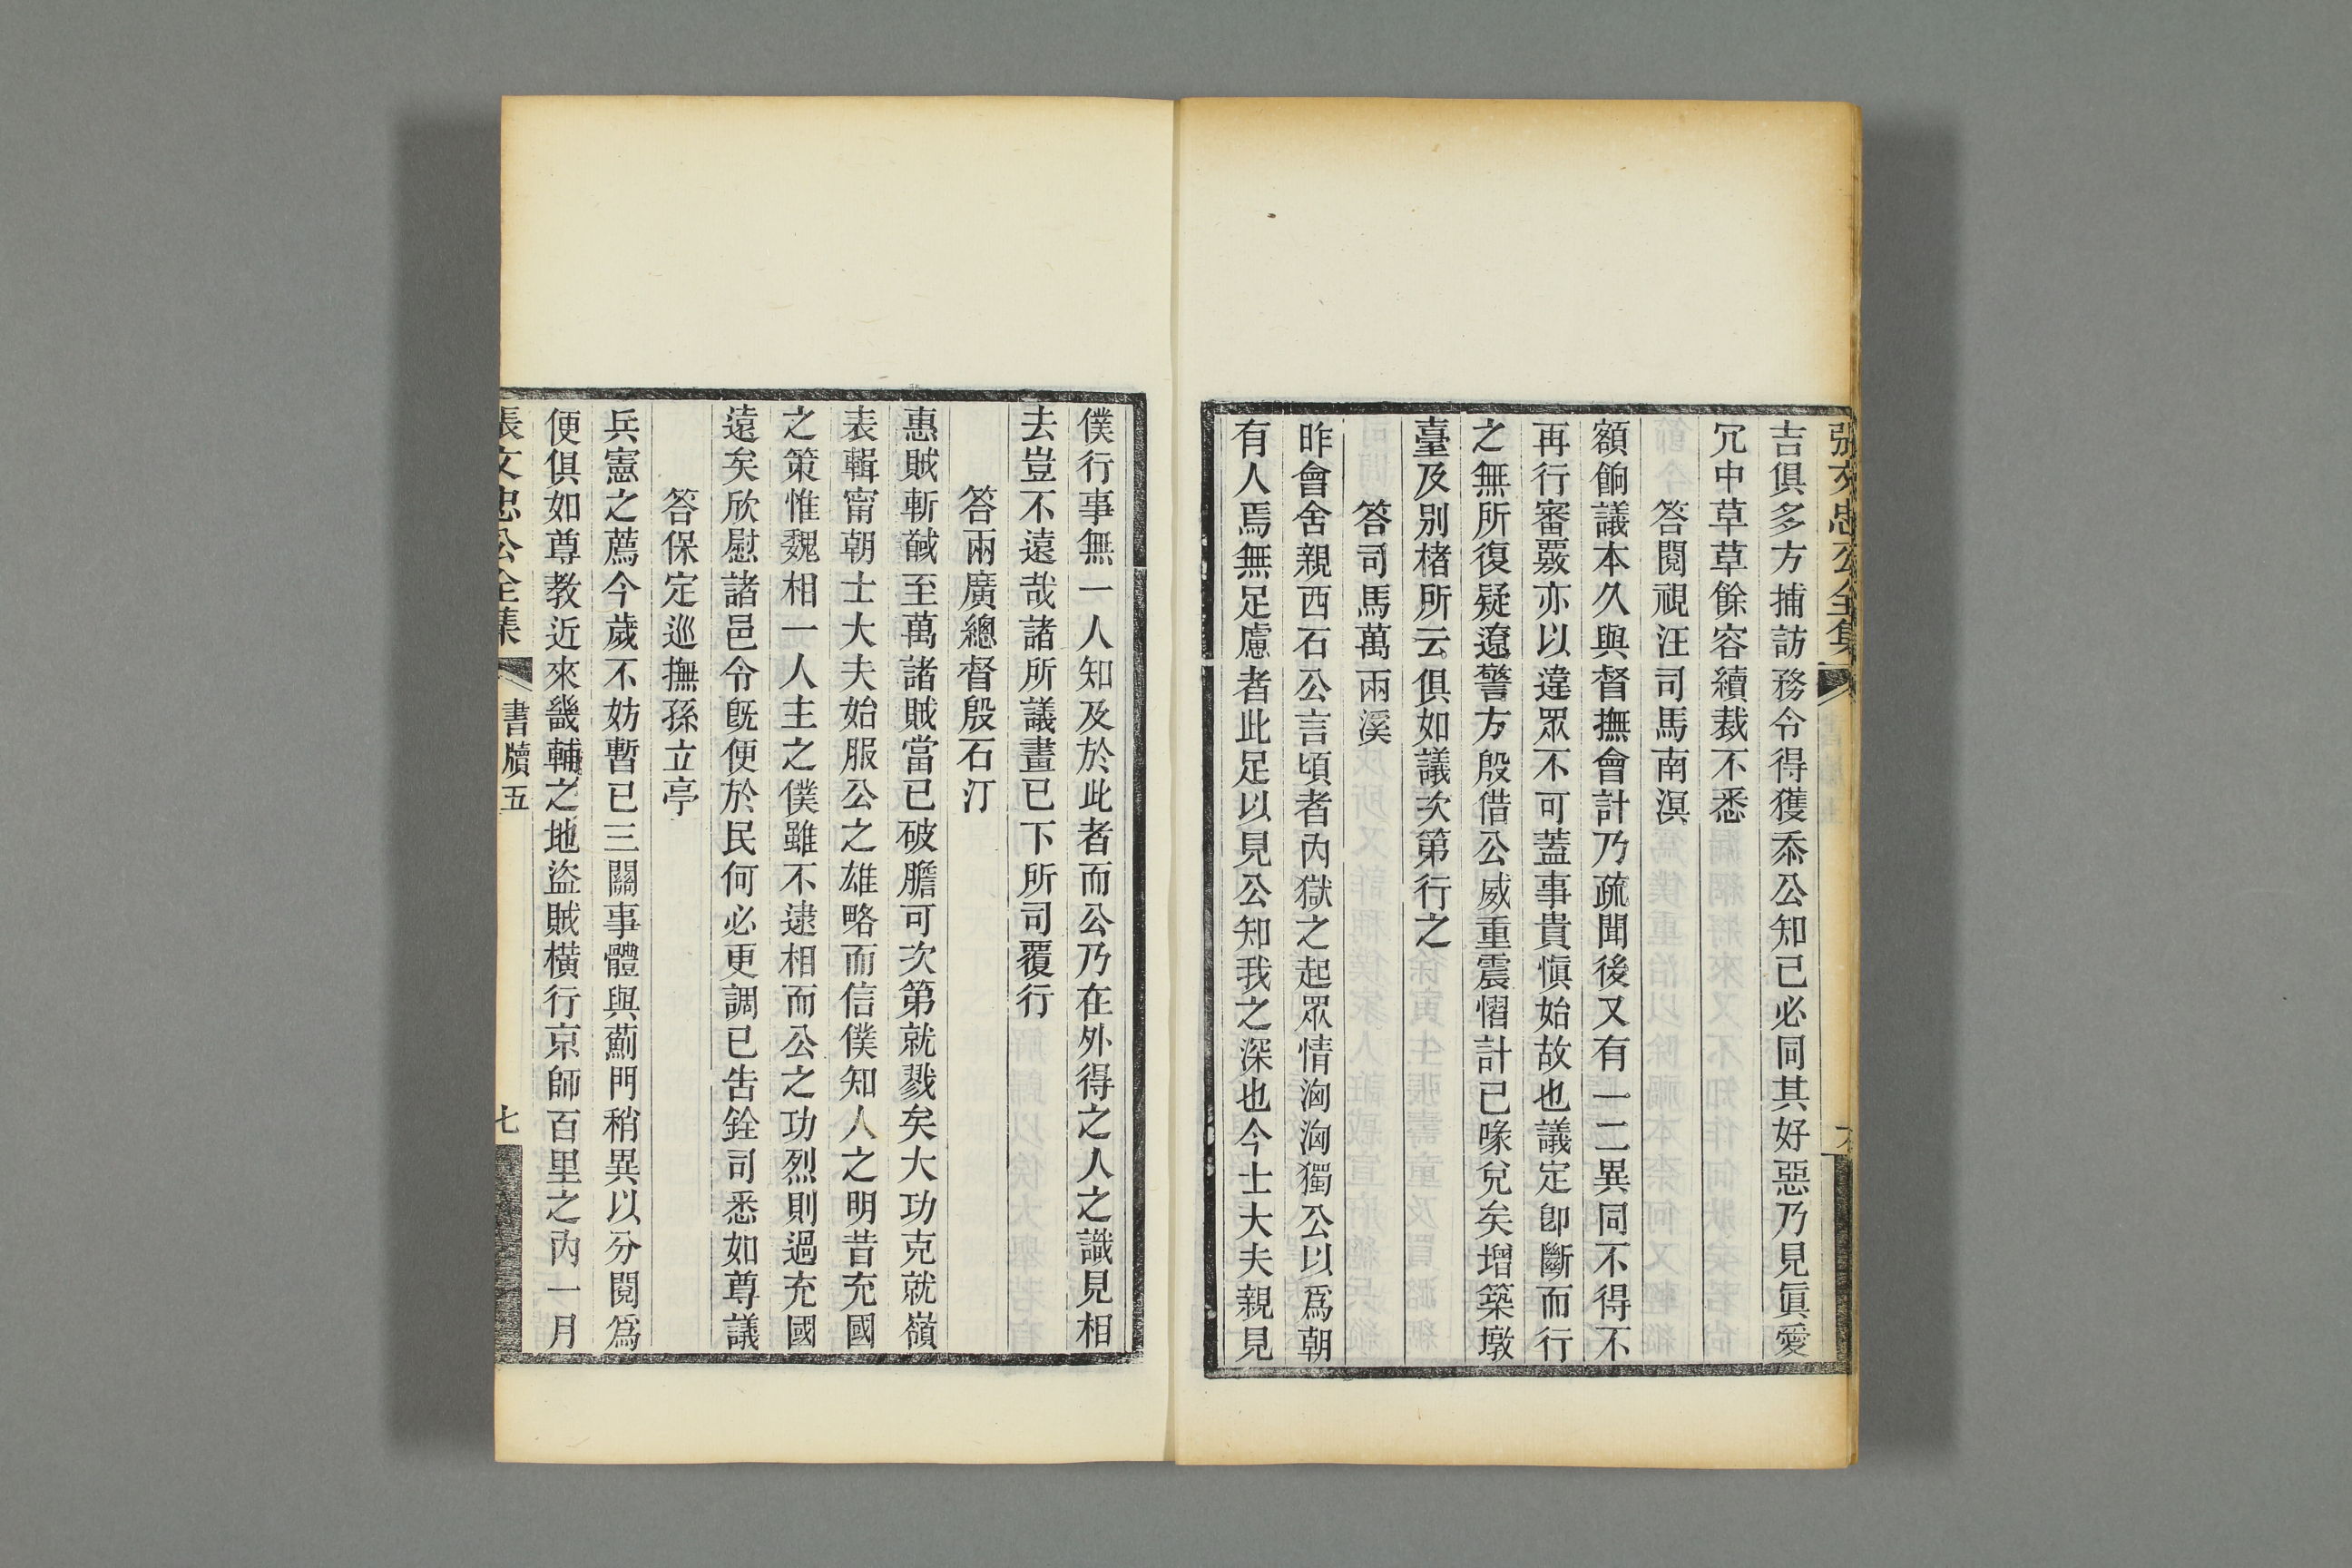 張文忠公全集
吉俱多方捕訪務令得獲忝公知已必同其好惡乃見眞愛
冗中草草餘容續裁不悉
答閱視汪司馬南溟
額餉議本久與督撫會計乃疏聞後又有一二異同不得不
再行審覈亦以違眾不可蓋事貴愼始故也議定卽斷而行
之無所復疑遼警方殷借公威重震慴計已喙兌矣增築墩
臺及别楮所云俱如議次第行之
答司馬萬兩溪
昨會舍親西石公言頃者內獄之起眾情洶洶獨公以爲朝
有人焉無足慮者此足以見公知我之深也今士大夫親見
僕行事無一人知及於此者而公乃在外得之人之識見相
去豈不遠哉諸所議畫已下所司覆行
答兩廣總督殷石汀
惠賊斬馘至萬諸賊當已破膽可次第就戮矣大功克就嶺
表輯甯朝士大夫始服公之雄略而信僕知人之明昔充國
之策惟魏相一人主之僕雖不逮相而公之功烈則過充國
遠矣欣慰諸邑令旣便於民何必更調已告銓司悉如尊議
答保定巡撫孫立亭
兵憲之薦今歲不妨暫已三關事體與薊門稍異以分閱爲
便俱如尊教近來畿輔之地盜賊橫行京師百里之內一月
張文忠公全集
書牘五
七